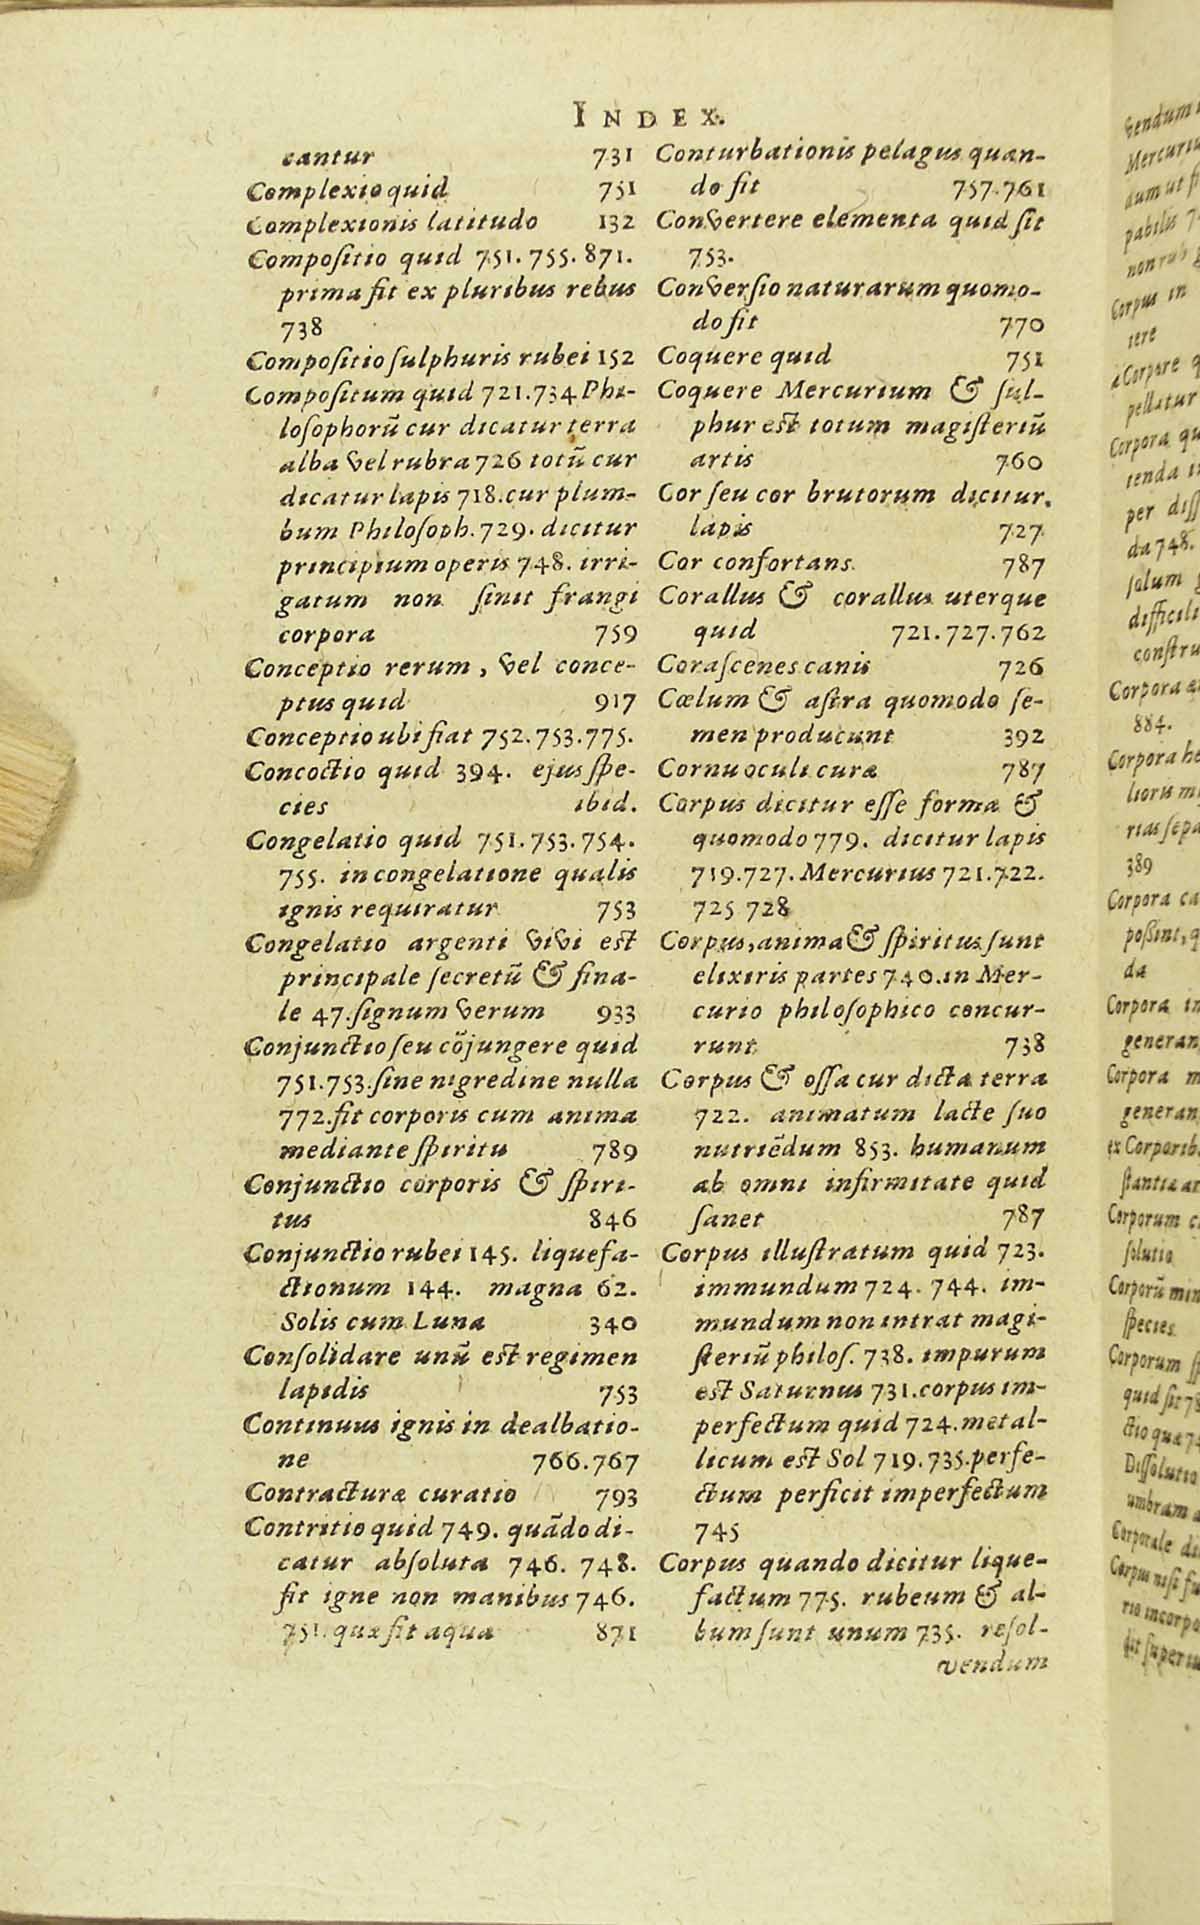 INDEX.
cantur 731
Complexio quid 751
Complexionis latitudo 132
Compoſitio quid 751. 755. 871.
prima fit ex pluribus rebus
738
Compoſitio ſulphuris rubei 152
Compoſitum quid 721.734 Phi-
loſophorū cur dicatur terra
alba vel rubra 726 totū cur
dicatur lapis 718. cur plum-
bum Philoſoph. 729. dicitur
principium operis 748. irri-
gatum non ſinit frangi
corpora 759
Conceptio rerum, vel conce-
ptus quid 917
Conceptio ubi fiat 752.753.775.
Concoctio quid 394. ejus ſpe-
cies ibid.
Congelatio quid 751.753.754.
755. in congelatione qualis
ignis requiratur 753
Congelatio argenti vivi est
principale ſecretū & fina-
le 47. ſignum verum 933
Conjunctio ſeu cõjungere quid
751.753. ſine nigredine nulla
772. fit corporis cum anima
mediante ſpiritu 789
Conjunctio corporis & ſpiri-
tus 846
Conjunctio rubei 145. liquefa-
ctionum 144. magna 62.
Solis cum Luna 340
Conſolidare unū est regimen
lapidis 753
Continuus ignis in dealbatio-
ne 766.767
Contracturæ curatio 793
Contritio quid 749. quādo di-
catur abſoluta 746. 748.
fit igne non manibus 746.
751. quæ fit aqua 871
Conturbationis pelagus quan-
do fit 757.761
Convertere elementa quid ſit
753.
Converſio naturarum quomo-
do fit 770
Coquere quid 751
Coquere Mercurium & ſul-
phur est totum magiſteriū
artis 760
Cor ſeu cor brutorum dicitur.
lapis 727
Cor confortans 787
Corallus & corallus uterque
quid 721.727.762
Coraſcenes canis 726
Cœlum & aſtra quomodo ſe-
men producunt 392
Cornu oculi curæ 787
Corpus dicitur eſſe forma &
quomodo 779. dicitur lapis
719.727. Mercurius 721.722.
725 728
Corpus, anima & ſpiritus ſunt
elixiris partes 740. in Mer-
curio philoſophico concur-
runt 738
Corpus & oſſa cur dicta terra
722. animatum lacte ſuo
nutriēdum 853. humanum
ab omni infirmitate quid
ſanet 787
Corpus illuſtratum quid 723.
immundum 724. 744. im-
mundum non intrat magi-
ſteriū philoſ. 738. impurum
est Saturnus 731. corpus im-
perfectum quid 724. metal-
licum est Sol 719.735. perfe-
ctum perficit imperfectum
745
Corpus quando dicitur lique-
factum 775. rubeum & al-
bum ſunt unum 735. reſol-
vendum
vendum
Mercuriu
dum ut
pabilis
Corpus in
tere
à Corpore
pellatur
Corpora qu
tenda
per diſſ
da 748.
ſolum
difficili
conſtru
Corpora
884.
Corpora he
389
Corpora ca
poſſint, q
da
Corpora in
generan
Corpora m
generan
ex Corporib
ſtantia
Corporum
ſolutio
Corporū min
ſpecies
Corporum ſp
quid ſit
ctio quæ
Diſſolutio
umbram
Corporale di
Corpus niſi
rio incorpo
fit ſuperiu